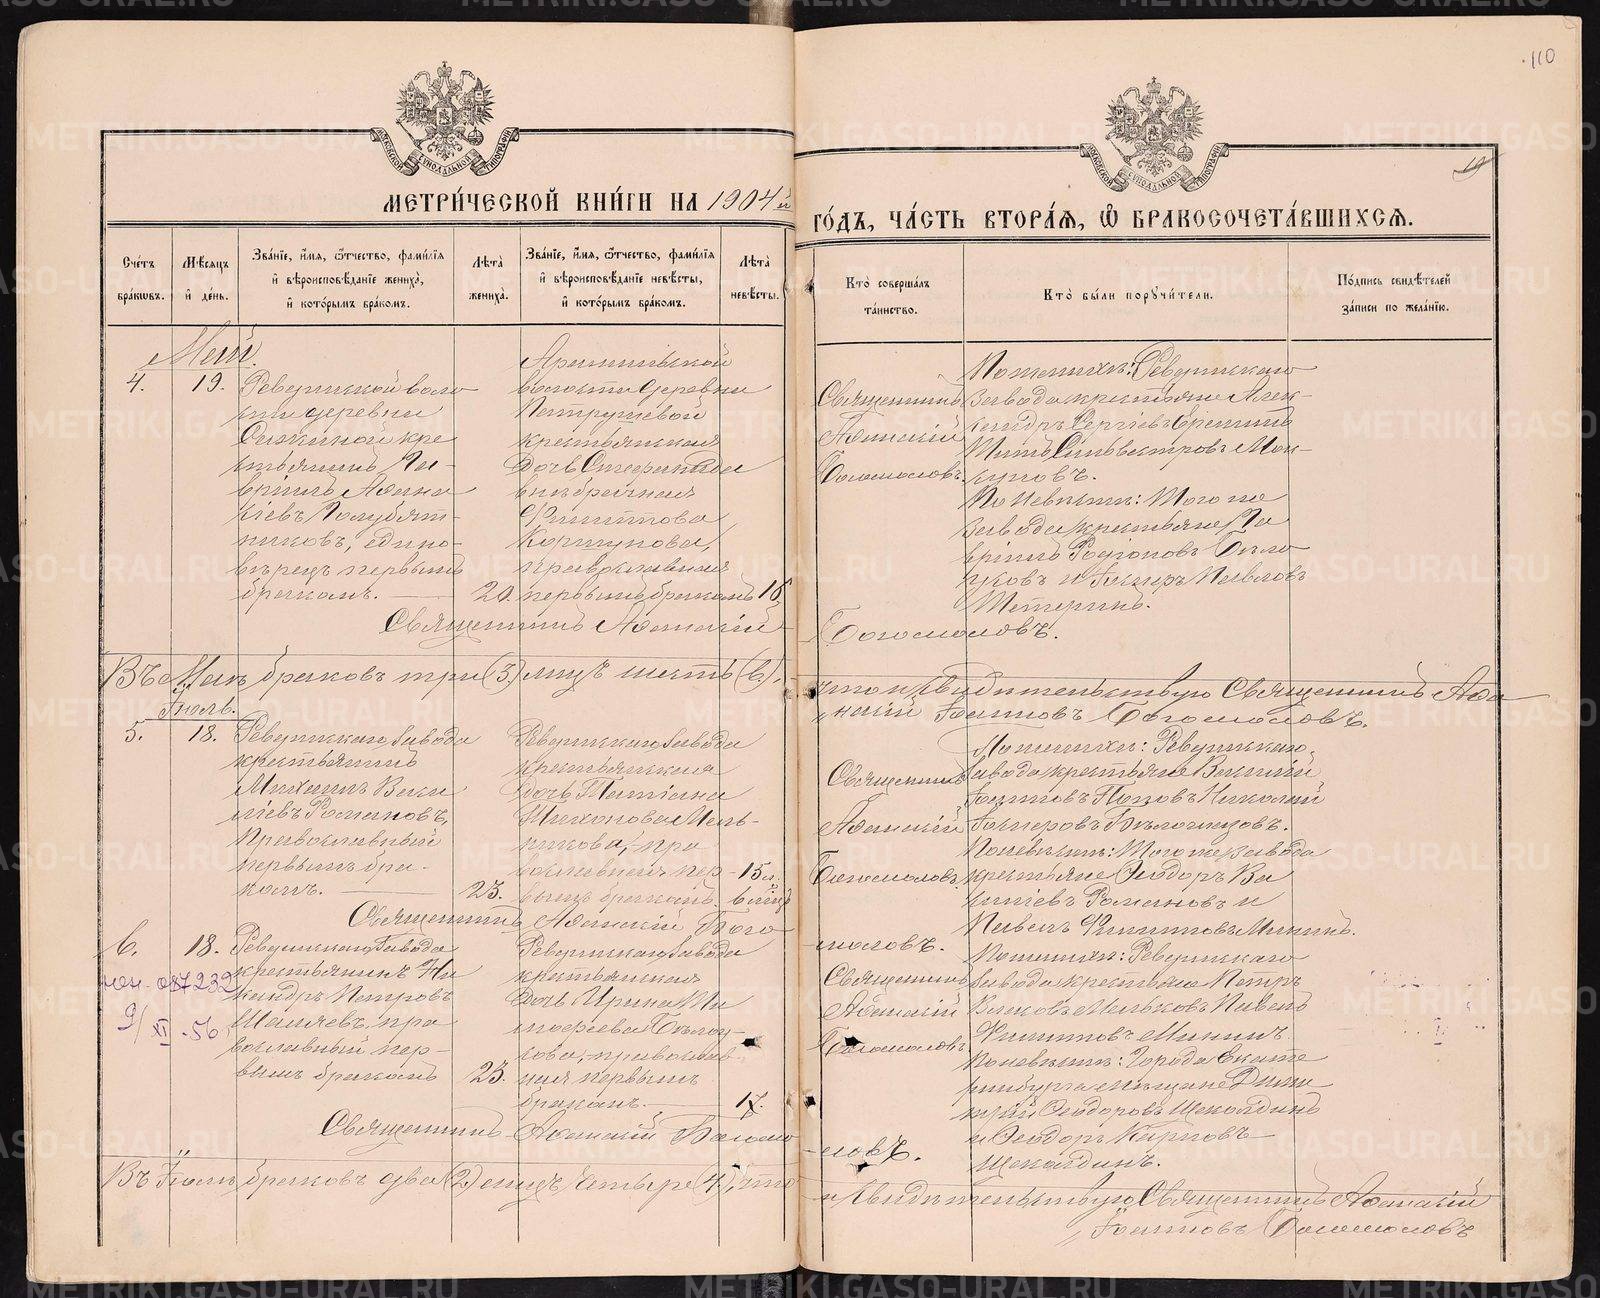 110
МЕТРИ́ЧЕСКОЙ КНИ́ГИ НА 1904 й
ГО́ДЪ, ЧА́СТЬ ВТОРА́Я, Ѿ БРАКОСОЧЕТА́ВШИХСЯ.
Сче́тъ бра́кѡвъ.
Мѣ́сяцъ и҆ де́нь.
Зва́нїе, и҆́мя, ѻ҆́тчество, фами́лїя и҆ вѣроисповѣ́данїе жениха̀, и҆ кото́рымъ бра́комъ.
Лѣ́та жениха̀.
Зва́нїе, и҆́мя, ѻ҆́тчество, фами́лїя и҆ вѣроисповѣ́данїе невѣ́сты, и҆ кото́рымъ бра́комъ.
Лѣ́та невѣ́сты.
Кто̀ соверша́лъ та́инство.
Кто̀ бы́ли порꙋчи́тели.
По́дпись свидѣ́телей за́писи по жела́нїю.
Май.
4.
19.
Ревдинской воло
сти деревни
кре
стьянинъ Га-
вріилъ Афана
сіевъ Голубят-
никовъ, едино-
вѣрецъ первымъ
бракомъ.
20.
Арамильской
волости деревни
Петрушевой
крестьянская
дочь Стефанида
внѣбрачная
Филиппова
Коршунова,
православная
первымъ бракомъ
16.
Священникъ
Афанасій
Богомоловъ.
По женихѣ: Ревдинскаго
завода крестьяне Алек-
сандръ Сергіевъ
Титъ Сильвестровъ Мок-
По невѣстѣ: Того же
завода крестьяне Га
вріилъ Родіоновъ Бѣло
усовъ и Павловъ
Щетеринъ.
Священникъ Афанасій
Богомоловъ.
Въ Маѣ браковъ три (3) лицъ шесть (6),
что и свидѣтельствую Священникъ Афа
насій Іоанновъ Богомоловъ.
Іюль.
5.
18.
Ревдинскаго завода
крестьянинъ
Михаилъ Васи
ліевъ Романовъ,
православный
первымъ бра-
комъ.
23.
Ревдинскаго завода
крестьянская
дочь Татіана
Тихонова Мель-
никова, пра
вославная пер-
вымъ бракомъ.
15 л.
6 мѣсц.
Священникъ
Афанасій
Богомоловъ
По женихѣ: Ревдинскаго
завода крестьяне Василій
Іоанновъ Поповъ Николай
По невѣстѣ: Того же завода
крестьяне Ѳеодоръ Ва
силіевъ Романовъ и
Павелъ Филипповъ Мининъ.
Священникъ Афанасій Бого
моловъ.
6.
18.
087232
9/XI-56
Ревдинскаго завода
крестьянинъ Ни
кандръ Петровъ
пра
вославный пер-
вымъ бракомъ
23.
Ревдинскаго завода
крестьянская
дочь Ирина Ти
мофеева Бѣлоу-
сова, православ
ная первымъ
бракомъ.
17.
Священникъ
Афанасій
Богомоловъ
По женихѣ: Ревдинскаго
завода крестьяне Петръ
Мельковъ Павелъ
Филипповъ Мининъ.
По невѣстѣ: Города Екате
ринбурга мѣщане Дими
трій Ѳеодоровъ Щекалдинъ
и Ѳеодоръ Карповъ
Щекалдинъ.
Священникъ Афанасій Богомо
ловъ.
Въ Іюлѣ браковъ два (2) лицъ четыре (4), что
и свидѣтельствую Священникъ Афанасій
Іоанновъ Богомоловъ
METRIKI.GASO-URAL.RU